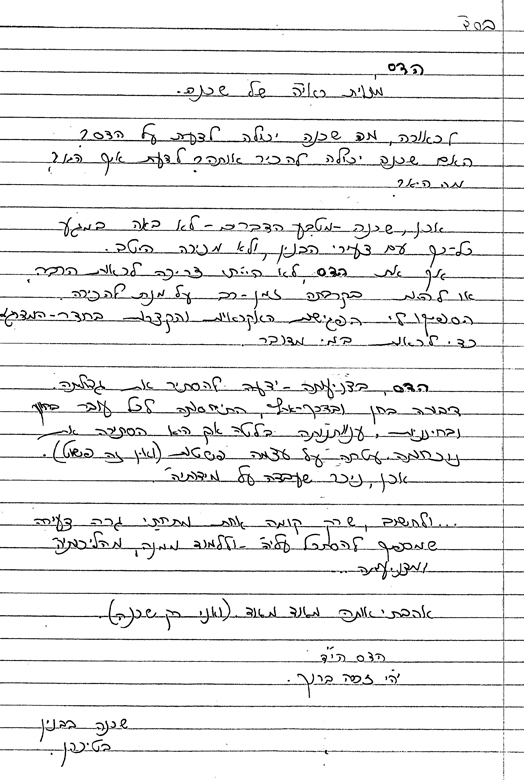 בס"ד
הדס,
מזוית ראיה של שכנה.
לכאורה, מה שכנה יכולה לדעת על הדס?
האם שכנה יכולה להכיר אותה? לדעת איך היא?
מה היא?
אכן, שכנה - מטבע הדברים - לא באה במגע
כל-כך עם צעירי הבנין, ולא מכירה היטב.
אך את הדס, לא הייתי צריכה לראות הרבה
או להיות בקרבתה זמן-רב על מנת להכירה.
הספיקו לי הפגישות האקראיות והקצרות בחדר-המדרגות
כדי לראות במי מדובר.
הדס, בצניעותה - ידעה להסתיר את גדלותה.
דיברה בחן ובדרך-ארץ, התיחסה לכל עובר בחיוך
ובחינניות, ענוותנותה בלטה אך היא הסתירה את
נוכחותה, עטתה על עצמה פשטות (ואין זה פשוט).
אכן, ניכר שעבדה על מידותיה.
...ולחשוב, שרק קומה אחת מתחתי גרה צעירה
שמספיק להסתכל עליה - וללמוד ממנה, מהליכותיה
ומצניעותה...
אהבתי אותה מאוד מאוד. (ואני רק שכנה).
הדס הי"ד
יהי זכרה ברוך.
שכנה בבנין